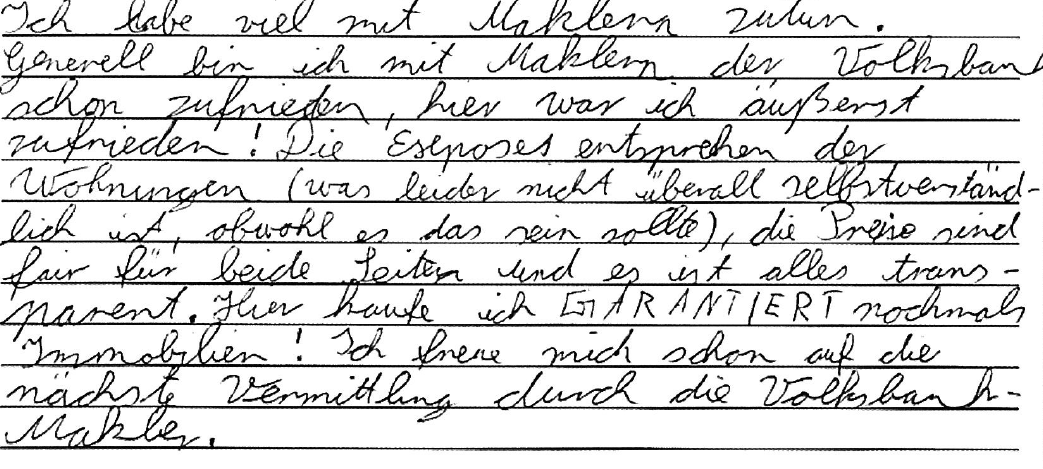 Ich habe viel mit Maklern zutun.
Generell bin ich mit Maklern der Volksbank
schon zufrieden, hier war ich äußerst
zufrieden! Die Exposes entsprechen der
Wohnungen (was leider nicht überall selbstverständ-
lich ist, obwohl es das sein sollte), die Preise sind
fair für beide Seiten und es ist alles trans-
parent. Hier kaufe ich GARANTIERT nochmals
Immobilien! Ich freue mich schon auf die
nächste Vermittlung durch die Volksbank-
Makler.